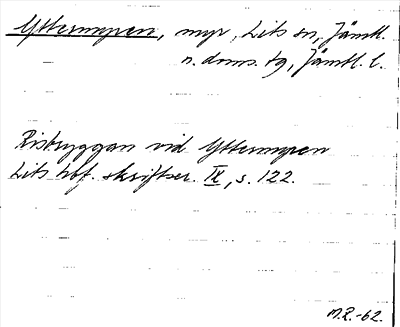 Yttermyren, myr, Lits sn, Jämtl.
n. doms. tg, Jämtl. l.
Risbryggan vid Yttermyren
Lits hbf. skriftser. IX, s. 122.
M.R.-62.